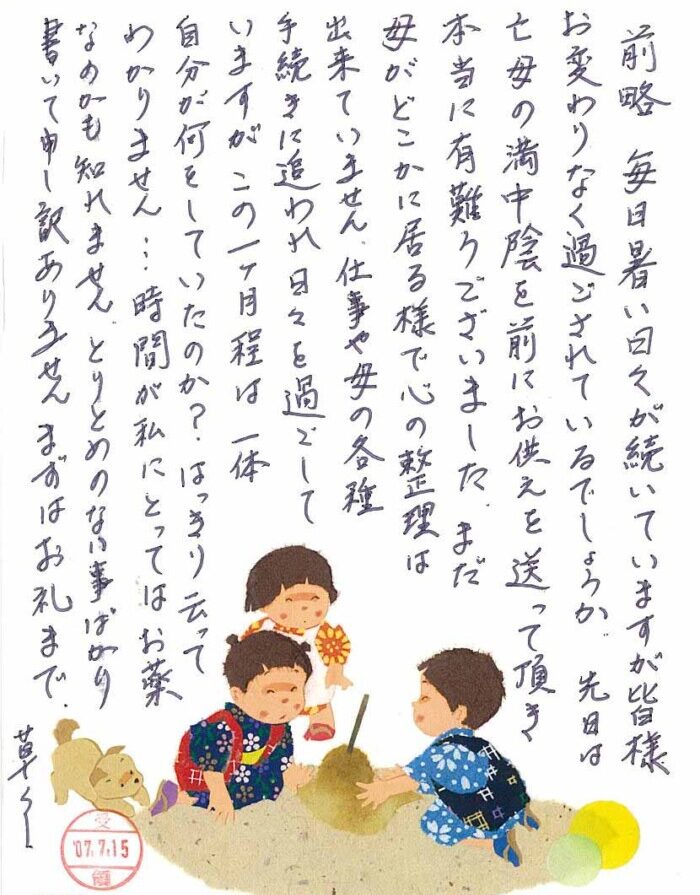 前略 毎日暑い日々が続いていますが皆様
お変わりなく過ごされているでしょうか。先日は
亡母の満中陰を前にお供えを送って頂き
本当に有難うございました。まだ
母がどこかに居る様で心の整理は
出来ていません。仕事や母の各種
手続きに追われ日々を過ごして
いますがこの一ヶ月程は一体
自分が何をしていたのか?はっきり云って
わかりません…時間が私にとってはお薬
なのかも知れません。とりとめのない事ばかり
書いて申し訳ありません。まずはお礼まで。
草々
受
'07.7.15